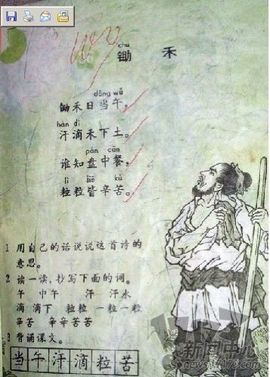 chú
锄 禾
dāng wǔ
锄禾日当午，
hàn dī
汗滴禾下土。
pán cān
谁知盘中餐，
lì jiē kǔ
粒粒皆辛苦。
1 用自己的话说说这首诗的
意思。
2 读一读，抄写下面的词。
午 中午 汗 汗水
滴 滴下 粒粒 一粒一粒
辛苦 辛辛苦苦
3 背诵课文。
当午汗滴粒苦
新闻中心